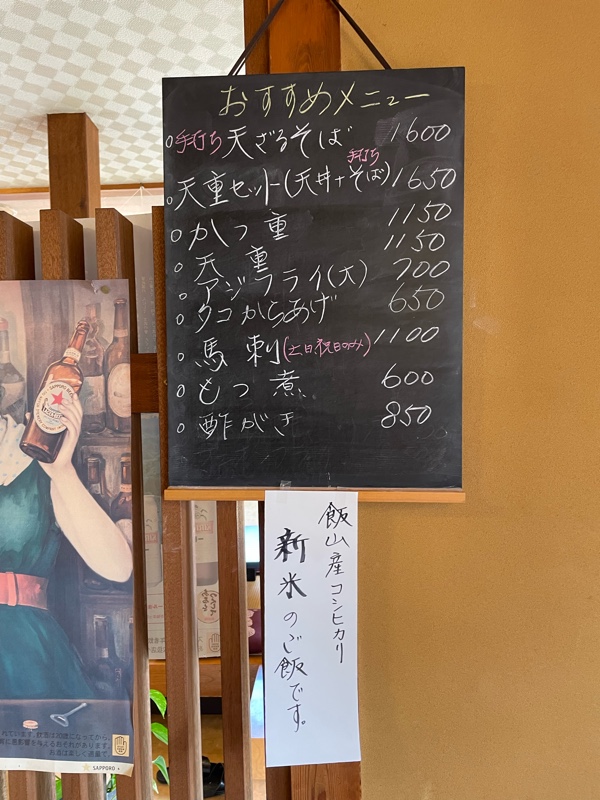 おすすめメニュー
○手打ち天ざるそば 1600
○天重セット(天丼+手打ちそば) 1650
○かつ重 1150
○天重 1150
○アジフライ(大) 700
○タコからあげ 650
○馬刺(土日.祝日のみ) 1100
○もつ煮 600
○酢がき 850
飯山産コンヒカリ
新米のご飯です。
SAPPORO